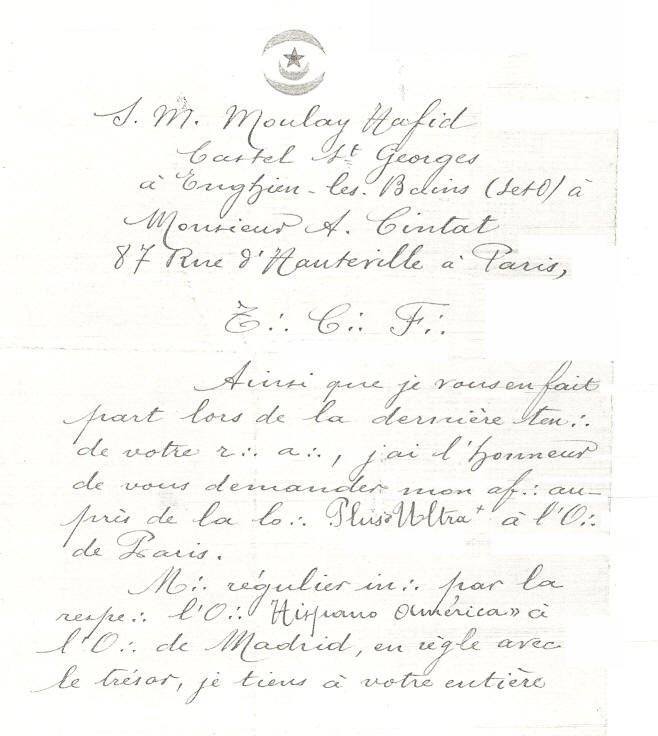 S. M. Moulay Hafid
Castel St Georges
à Enghien-les-Bains (SetO) à
Monsieur A. Cintat
87 Rue d'Hauteville à Paris,
T∴ C∴ F∴
Ainsi que je vous en fait
part lors de la dernière ten∴
de votre r∴ a∴, j'ai l'honneur
de vous demander mon af∴ au-
près de la lo∴ Plus Ultra à l'O∴
de Paris.
M∴ régulier in∴ par la
respe∴ l'O∴ "Hispano América" à
l'O∴ de Madrid, en règle avec
le trésor, je tiens à votre entière